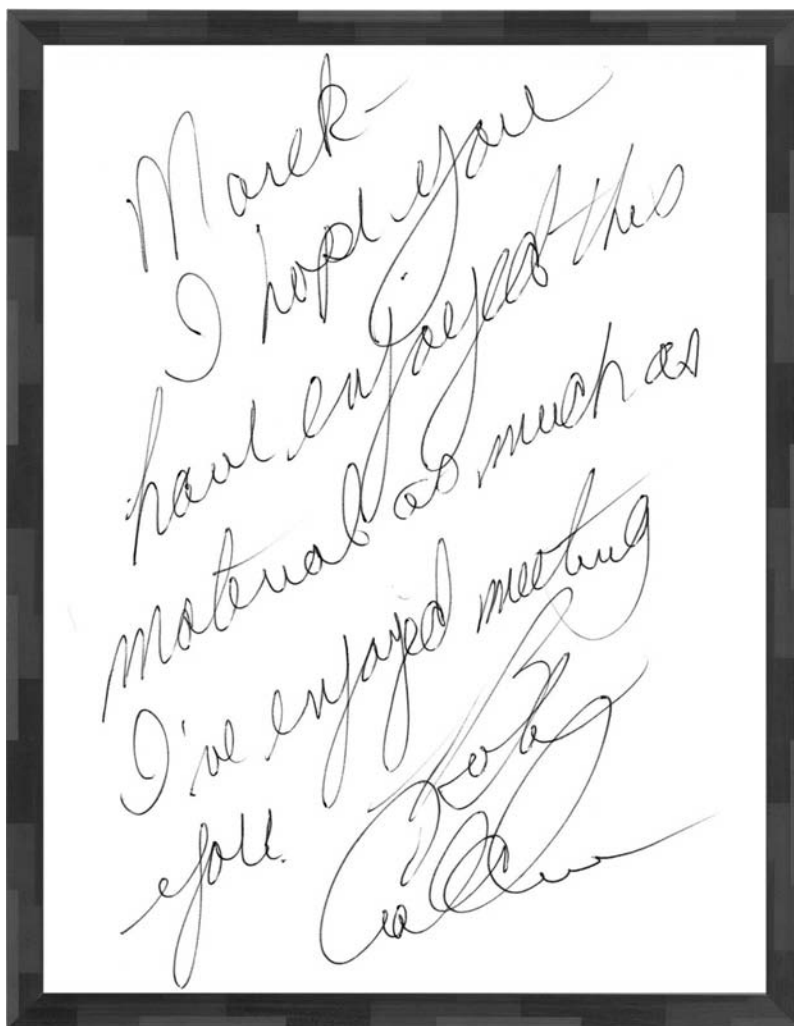 Marek-
I hope you
have enjoyed this
material as much as
I've enjoyed meeting
you.